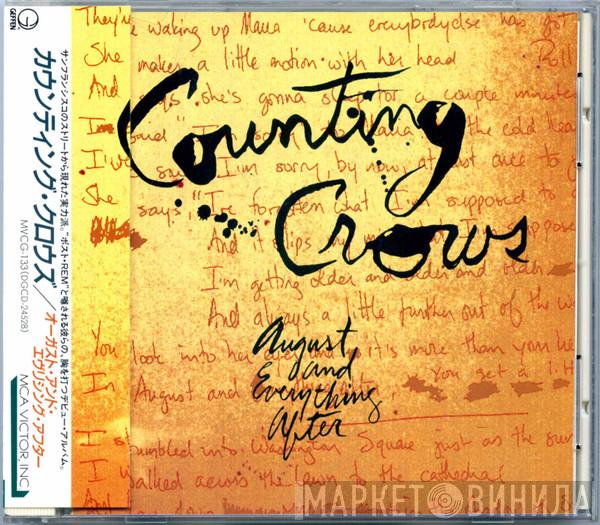 GEFFEN
サンフランシスコのストリートから現れた実力派。“ポスト・REM”と噂される彼らの、胸を打つデビュー・アルバム。
カウンティング・クロウズ／オーガスト・アンド・エヴリシング・アフター
MVCG-133(DGCD-24528)
MCA VICTOR, INC.
They're waking up Maria 'cause everybody else has got
She makes a little motion with her head
And she's gonna sleep for a couple minutes
Counting
Crows
the cold
I'm sorry, by now, at just once to
She says, "I've forgotten what I'm supposed to
And it slips my
I'm getting older and older and older
And always a little further out of the
You look into her and it's more than you
In August and You get a
August
and
Everything
After
I stumbled into Washington Square just as the sun
I walked across the lawn to the cathedral
And
МАРКЕТ ВИНИЛА